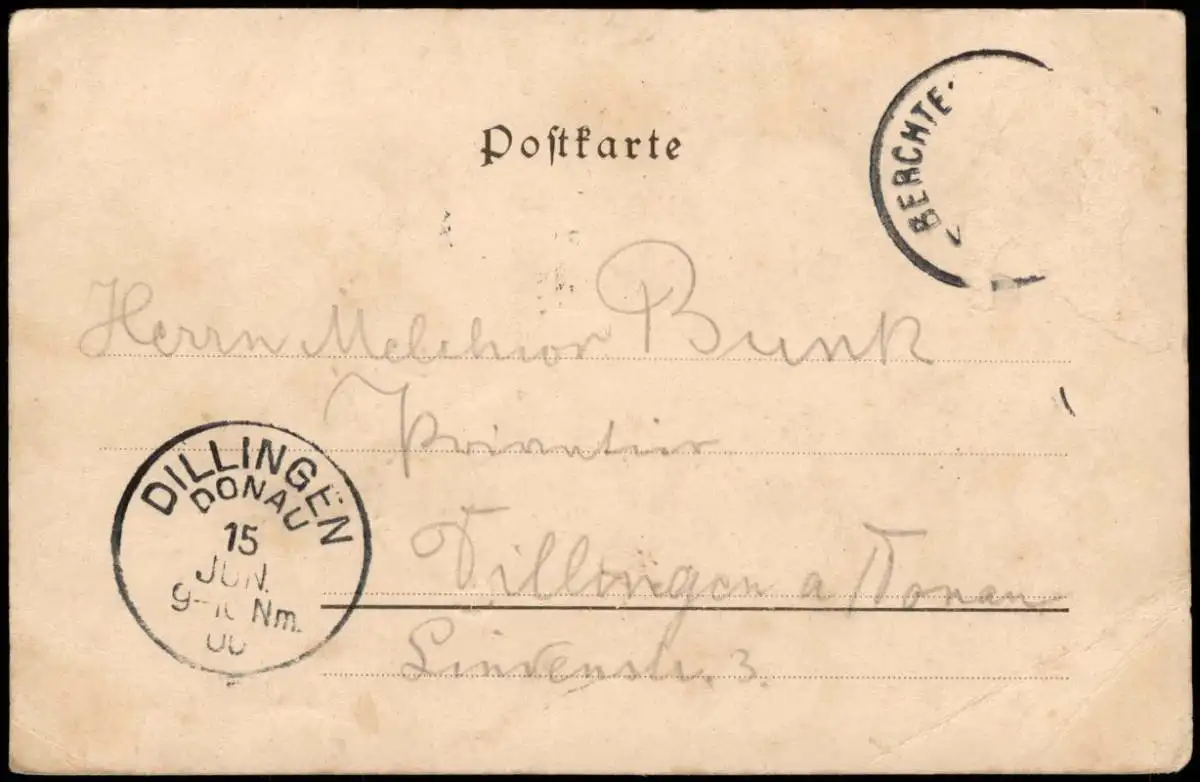 Postkarte
BERCHTE
Herrn Melchior Bunk
Privatier
Dillingen a Donau
Lindenstr. 3.
DILLINGEN
DONAU
15
JUN.
9-10 Nm.
00